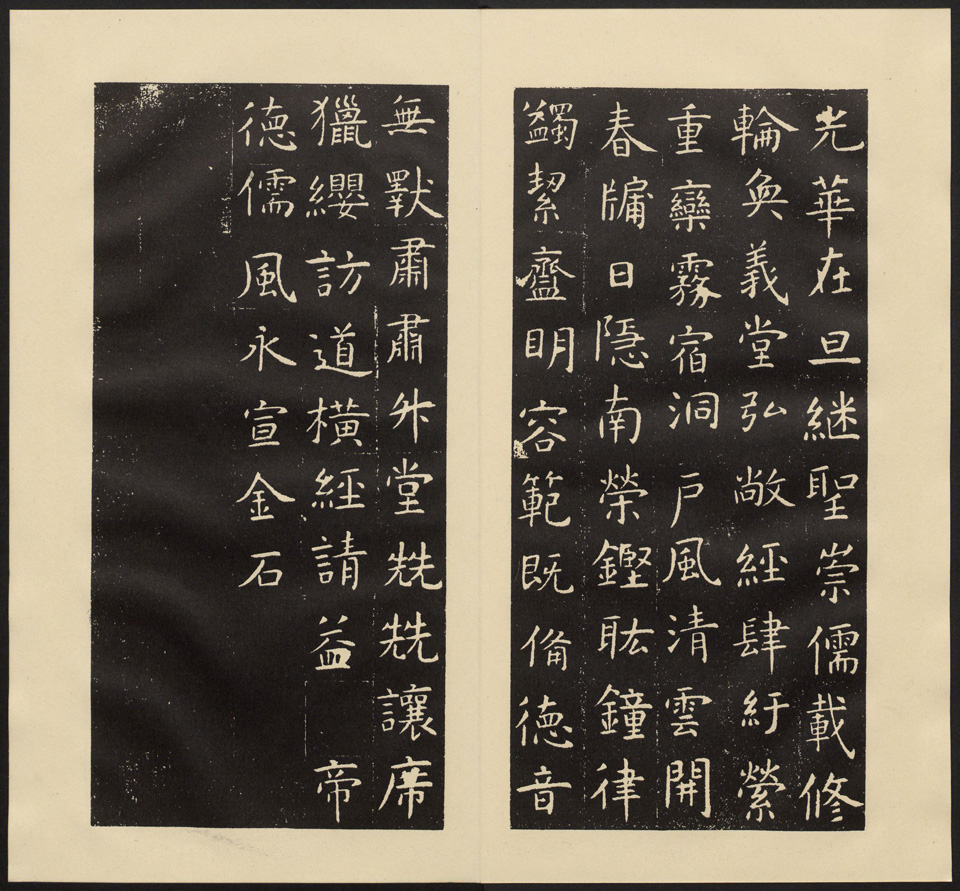 光華在旦継聖崇儒載修
輪奐義堂弘敞經肆紆縈
重欒霧宿洞戸風清雲開
春牗日隱南榮鏗耾鐘律
蠲絜齍明容範既俻徳音
無斁肅肅升堂兟兟讓席
獵纓訪道橫經請益帝
徳儒風永宣金石